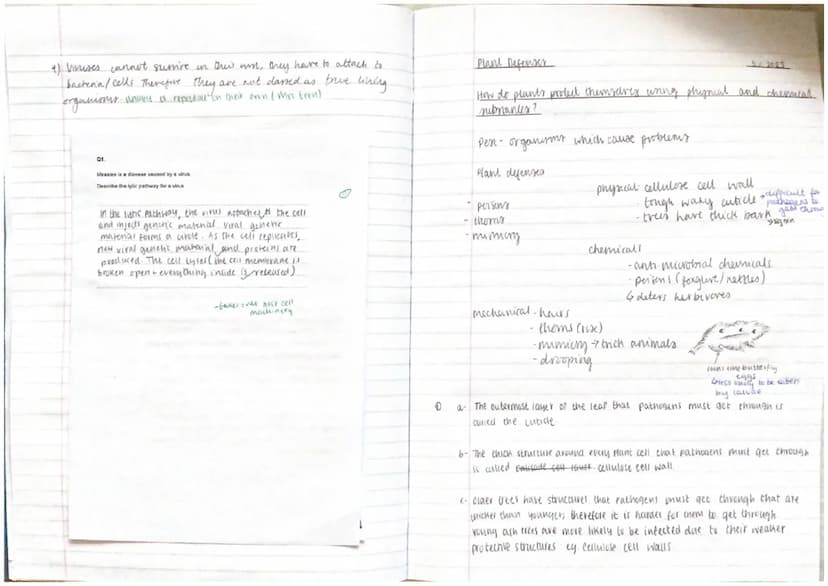 4) Viruses cannot survive on their own, they have to attach to
bacteria/cells Therefore They are not classed as true living
organisms. unable to reproduce on their own (Mrs Green)
Q1.
Measles is a disease caused by a virus.
Describe the lytic pathway for a virus
In the lytic pathway, the virus attaches to the cell
and injects genetic material. Viral genetic
material forms a circle. As the cell replicates,
new viral genetic material and proteins are
produced. The cell lyses (the cell membrane is
broken open + everything inside is released)
- takes over host cell
machinery
Plant Defenses
How do plants protect themselves using physical and chemical
substances?
Pest - organisms which cause problems
Plant defenses
- poisons
- thorns
- mimicry
physical - cellulose cell wall
- tough waxy cuticle → difficult for
pathogens to
- trees have thick bark
chemicals
- anti-microbial chemicals
- poisons (foxglove/nettles)
↳ deters herbivores
mechanical - hairs
- thorns (rose)
- mimicry → trick animals
- drooping
looks like butterfly
eggs
↳ less likely to be eaten
by larvae
1) a- The outermost layer of the leaf that pathogens must get through is
called the cuticle
b- The thick structure around every plant cell that pathogens must get through
is called cellulose cell wall
c- Older trees have structures that pathogens must get through that are
thicker than youngers, therefore it is harder for them to get through
young ash trees are more likely to be infected due to their weaker
protective structures eg cellulose cell walls